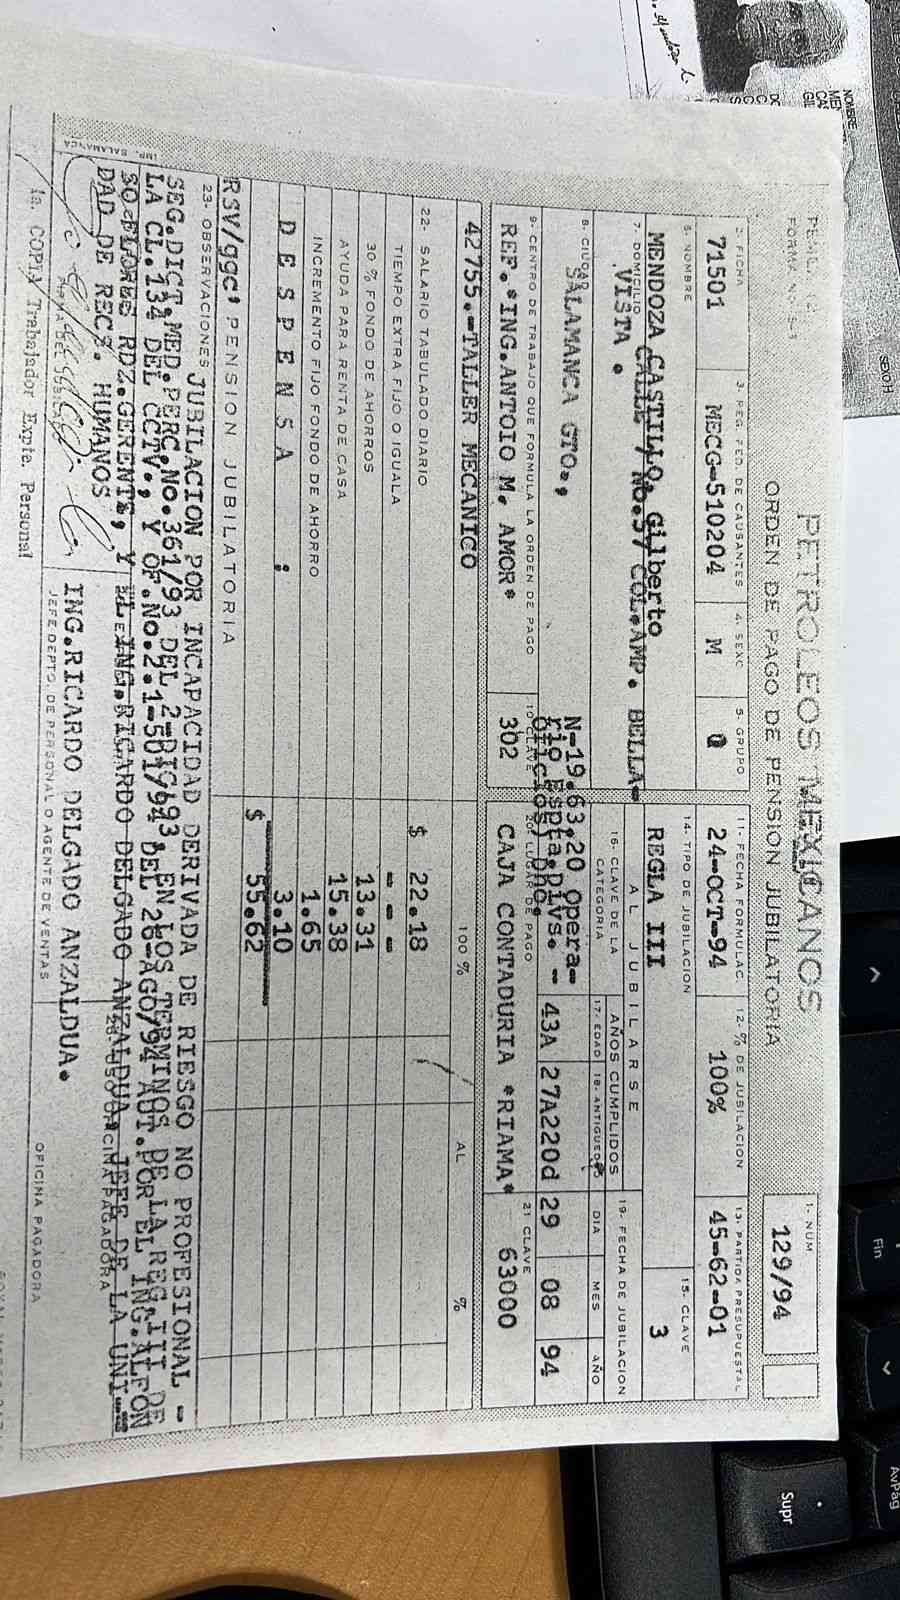 PETROLEOS MEXICANOS
ORDEN DE PAGO DE PENSION JUBILATORIA
1- NUM
129/94
2- FICHA
3- REG. FED. DE CAUSANTES
4- SEXO
5- GRUPO
11- FECHA FORMULAC.
12- % DE JUBILACION
13- PARTIDA PRESUPUESTAL
71501
MECG-510204
M
0
24-OCT-94
100%
45-62-01
6- NOMBRE
14- TIPO DE JUBILACION
15- CLAVE
MENDOZA CASTILLO, Gilberto
REGLA III
3
7. DOMICILIO
CALLE 7 No.57 COL.AMP. BELLA-
VISTA.
AL JUBILARSE
16- CLAVE DE LA CATEGORIA
AÑOS CUMPLIDOS
19- FECHA DE JUBILACION
17- EDAD
18- ANTIGUEDAD
DIA
MES
AÑO
8- CIUDAD
SALAMANCA GTO.,
N-19.63.20 Opera-
rio Espta.Divs. -
oficios) Dno.
43A
27A220d
29
08
94
9- CENTRO DE TRABAJO QUE FORMULA LA ORDEN DE PAGO
10 CLAVE
20- LUGAR DE PAGO
21 CLAVE
REF.*ING.ANTOIO M. AMOR*
302
CAJA CONTADURIA *RIAMA*
63000
42755.-TALLER MECANICO
100 %
AL
%
22- SALARIO TABULADO DIARIO
$ 22.18
TIEMPO EXTRA FIJO O IGUALA
- - -
30 % FONDO DE AHORROS
13.31
AYUDA PARA RENTA DE CASA
15.38
INCREMENTO FIJO FONDO DE AHORRO
1.65
D E S P E N S A :
3.10
RSV/ggc' PENSION JUBILATORIA
$ 55.62
23- OBSERVACIONES JUBILACION POR INCAPACIDAD DERIVADA DE RIESGO NO PROFESIONAL -
SEG.DICT.MED.PERC.No.361/93 DEL 2-DIC/93, EN LOS TERMINOS DE LA REG.III DE
LA CL.134 DEL CCTV., Y OF.No.2.1-501/94 DEL 26-AGO/94 AUT.POR EL ING.ALFON
SO FLORES RDZ.GERENTE, Y EL ING.RICARDO DELGADO ANZALDUA, JEFE DE LA UNI-
DAD DE REC. HUMANOS
ING.RICARDO DELGADO ANZALDUA.
JEFE DEPTO. DE PERSONAL O AGENTE DE VENTAS
OFICINA PAGADORA
1a. COPIA Trabajador Expte. Personal
IMP. SALAMANCA
NOMBRE
SEXO H
Fin
Supr
AvPág